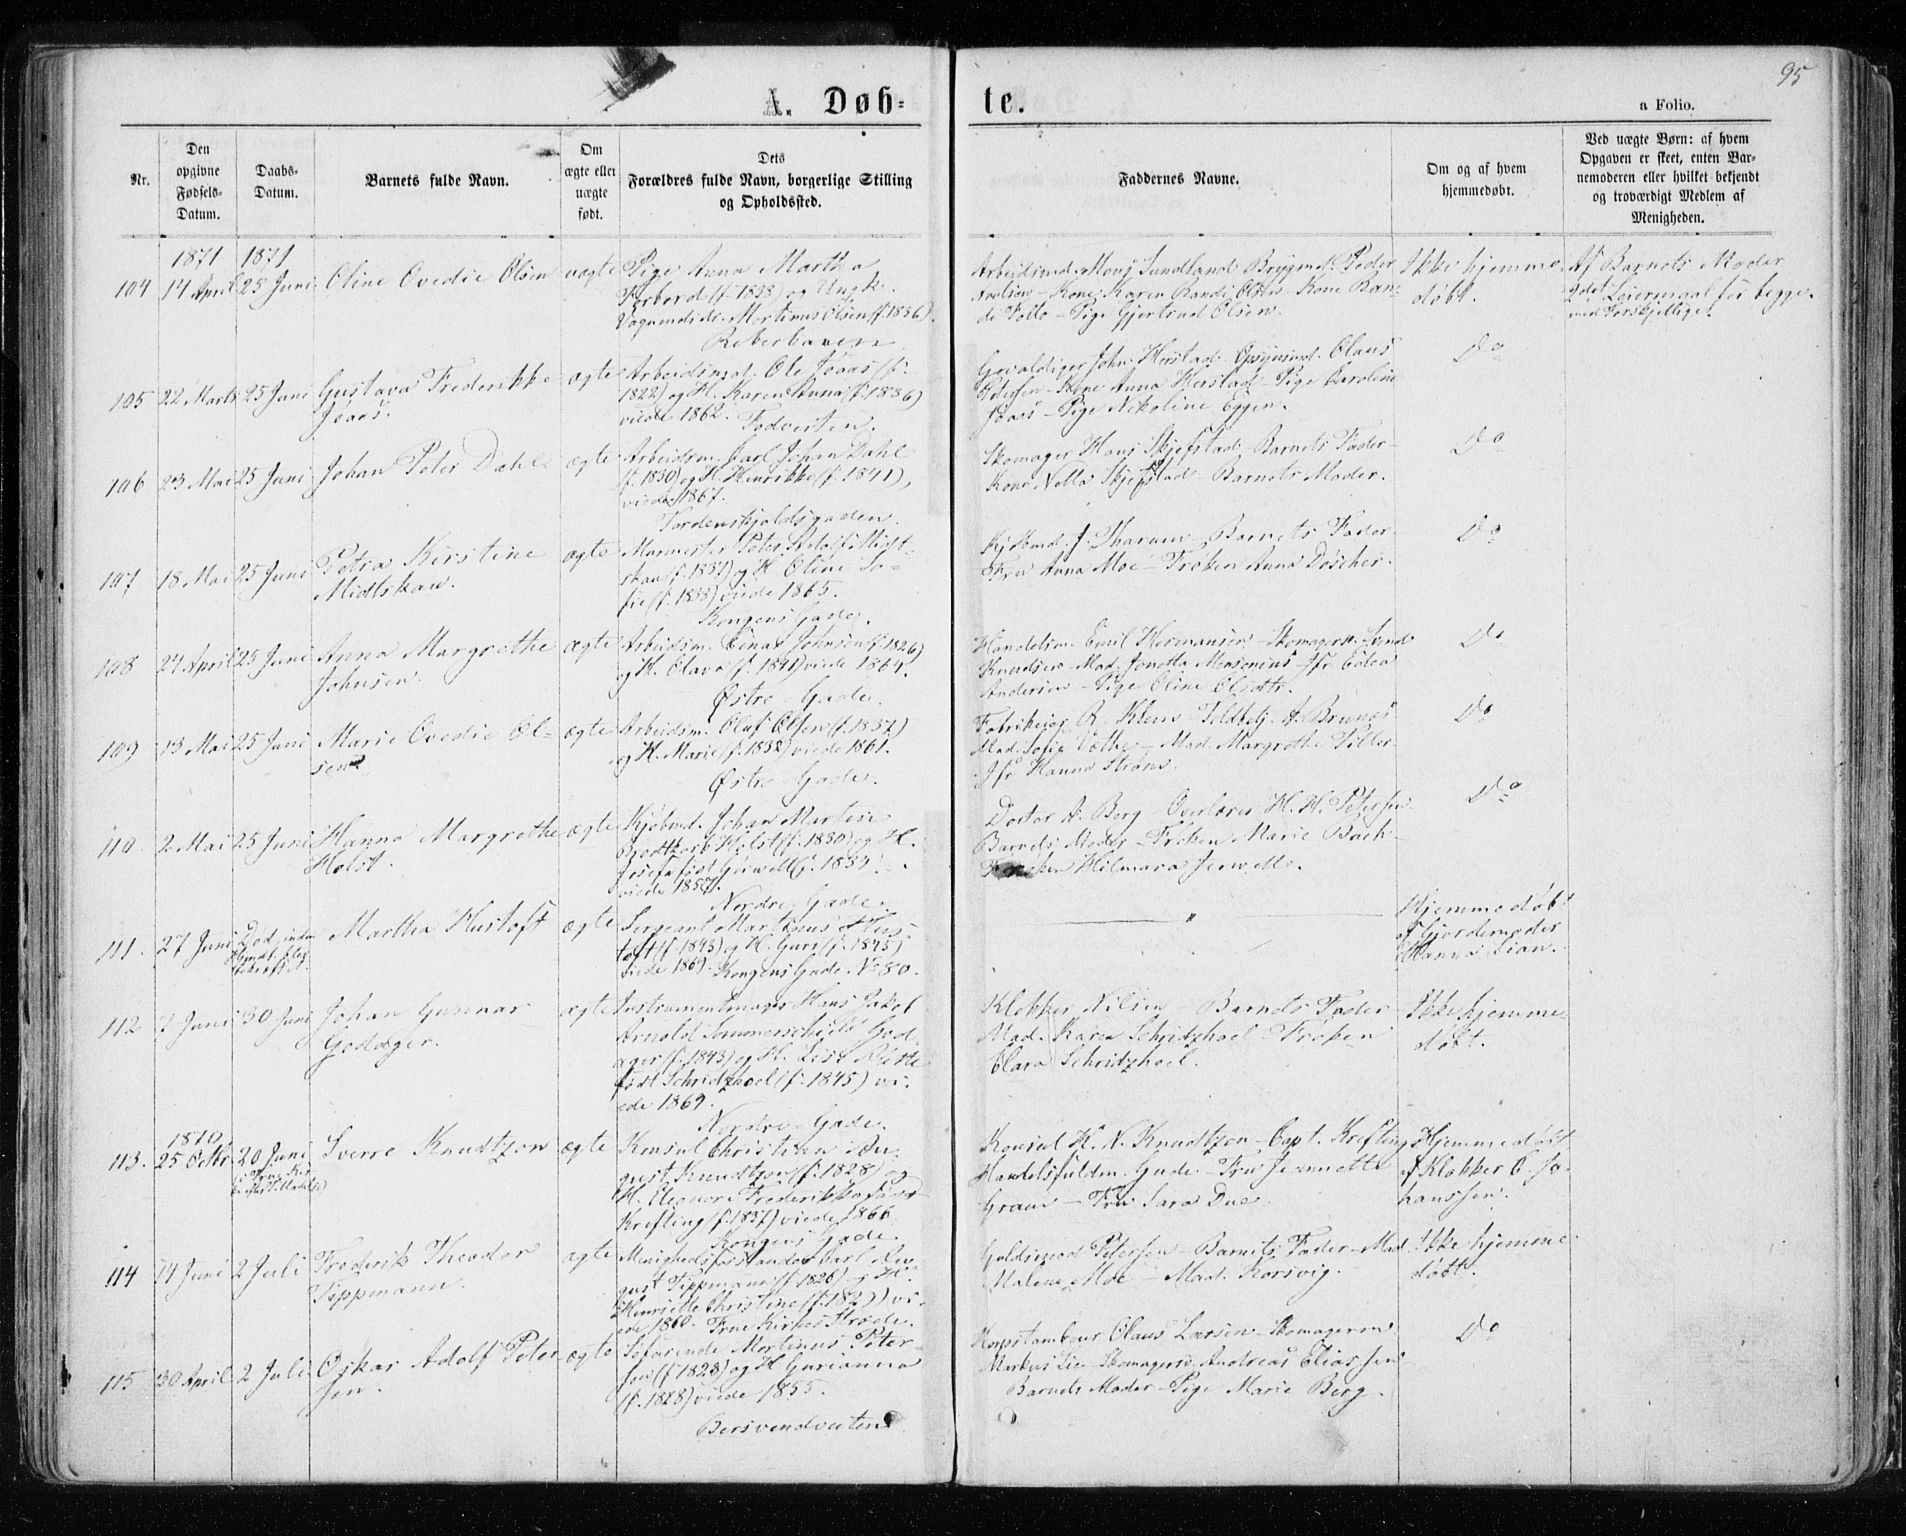 95
A. Døb-
te.
a Folio.
Nr.
Den
opgivne
Fødsels-
Datum.
Daabs-
Datum.
Barnets fulde Navn.
Om
ægte eller
uægte
født.
Dets
Forældres fulde Navn, borgerlige Stilling
og Opholdssted.
Faddernes Navne.
Om og af hvem
hjemmedøbt.
Ved uægte Børn: af hvem
Opgaven er skeet, enten Bar-
nemoderen eller hvilket bekjendt
og troværdigt Medlem af
Menigheden.
1871 1871
104 14 April 25 Juni Oline Ovedie Olsen uægte Pige Anna Martha
Forbord (f. 1838) og Ungk.
Vognmds dr. Mortinus Olsen (f. 1836).
Reberbanen
Arbeidsmd. Mons Sundland Brygmst. Peder
Kone Karen Randi Olsen - Kone Ran-
di Follo - Pige Gjertrud Olsen.
Ikke hjemme
døbt.
Af Barnets Moder
2det Leiermaal for begge
med Forskjellige.
105 22 Marts 25 Juni Gustava Frederikke
Joaas.
ægte Arbeidsmd. Ole Joaas (f.
1822) og H. Karen Anna (f. 1836)
viede 1862. Fodvesten.
Gevaldiger John Herstad - Opsynsmd. Olaus
Petersen - Kone Anna Herstad - Pige Caroline
Joaas - Pige Nikoline Eggen.
Do
106 23 Mai 25 Juni Johan Peter Dahl ægte Arbeidsm. Carl Johan Dahl
(f. 1830) og H. Henrikke (f. 1841),
viede 1867.
Tordenskjoldsgaden.
Skomager Hans Skjefstad - Barnets Fader -
Kone Nella Skjefstad - Barnets Moder.
Do
107 18 Mai 25 Juni Petra Kirstine
Midtskau.
ægte Murmester Peter Adolf Midt-
skau (f. 1837) og H. Oline So-
fie (f. 1838) viede 1865.
Kongens Gade.
Kjøbmd. J. Tharum - Barnets Fader -
Fru Anna Moe - Frøken Anna Døscher.
Do
108 27 April 25 Juni Anna Margrethe
Johnsen.
ægte Arbeidsm. Einar Johnsen (f. 1826)
og H. Olava (f. 1841) viede 1864.
Østre Gade.
Handelsm. Emil Hermansen - Skomagers. Svend
Knudsen - Mad. Jonetta Monsenius - Jfr Edea
Andersen - Pige Oline Olsdtr.
Do
109 13 Mai 25 Juni Marie Ovedie Ol-
sen
ægte Arbeidsm. Oluf Olsen (f. 1837)
og H. Marie (f. 1832) viede 1861.
Østre Gade.
Fabrikeier R. Klem - Toldbetj. A. Brunæs
Mad. Sofie Vethe - Mad. Margrethe Piller
Jfr Hanna Strøm.
Do
110 2 Mai 25 Juni Hanna Margrethe
Holst.
ægte Kjøbmd. Johan Martin
Holst (f. 1830) og H.
Josefa født Gørwell (f. 1834)
viede 1857.
Nordre Gade.
Doctor A. Berg - Overlærer H. H. Petersen
Barnets Moder - Frøken Marie Bach -
Frøken Hilmara Jerwell.
Do
111. 27 Juni Martha Hustoft ægte Sergeant Martinus Hus-
toft (f. 1843) og H. Guri (f. 1845)
viede 1869. Kongens Gade. No 80.
"
Hjemmedøbt
af Gjordemoder
Hanna Lian.
112 3 Juni 30 Juni Johan Gunnar
Godager.
ægte Instrumentmager Hans Jakob
Arnold Sommerschield God-
ager (f. 1843) og H. Lise Rette
født Schridzhoel (f. 1845) vi-
ede 1869.
Nordre Gade.
Klokker Nilsen - Barnets Fader
Mad. Karen Schridzhoel - Frøken
Clara Schridzhoel.
Ikke hjemme
døbt.
1870
113. 25 Octbr. 20 Juni Sverre Knudtzon ægte Konsul Christian Au-
gust Knudtzon (f. 1828) og
H. Eleonore Frederikke født
Krefting (f. 1837) viede 1866
Kongens Gade.
Konsul H. N. Knudtzon - Capt. Krefting
Handelsfuldm. Gade - Fru Jeannette
Gram - Fru Sara Due.
Hjemmedøbt
af Klokker C. Jo-
hanssen.
114 14 Juni 2 Juli Frederik Theodor
Tippmann.
ægte Menighedsforstander Carl Au-
gust Tippmann (f. 1826) og H.
Henriette Christine vi-
ede 1860. Frue Kirkes Stræde.
Guldsmed Petersen - Barnets Fader - Mad.
Malene Moe - Mad. Korsvig.
Ikke hjemme
døbt.
115 30 April 2 Juli Oskar Adolf Peter-
sen.
ægte Søfarende Mortinus Peter-
sen (f. 1828) og H. Gurianna
(f. 1828) viede 1855.
Bersvendveiten
Korpstambour Olaus Larsen - Skomagersv.
Markus Lie - Skomagersv. Andreas Eliassen
Barnets Moder - Pige Marie Berg.
Do